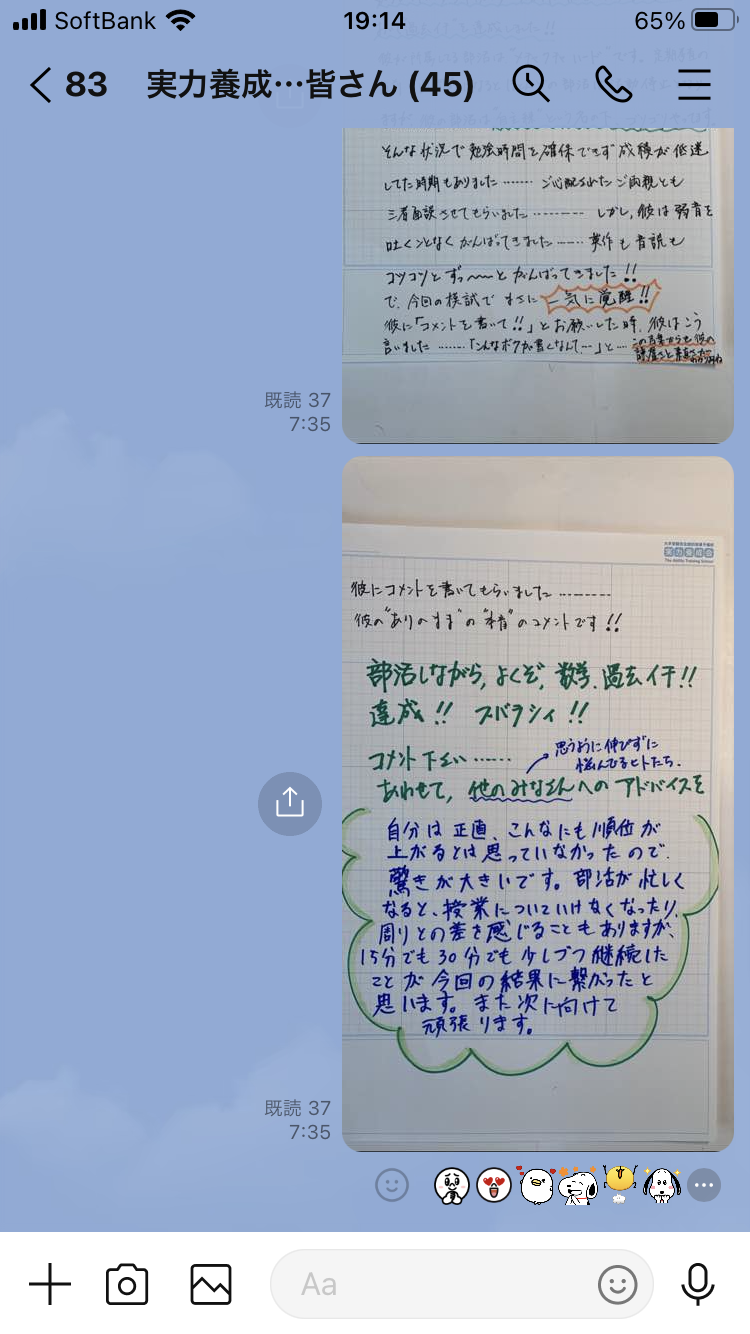 SoftBank 19:14 65%
83 実力養成…皆さん (45)
そんな状況で勉強時間を確保できず成績が低迷
してた時期もありました……… ご心配されたご両親とも
三者面談させてもらいました………… しかし,彼は弱音を
吐くことなくがんばってきました…… 英作も音読も
コツコツとずっ〜〜とがんばってきました!!
で、今回の模試でまさに一気に覚醒!!
彼に「コメントを書いて!!」とお願いした時、彼はこう
言いました……「こんなボクが書くなんて…」と…
この言葉からも彼の
謙虚さと素直さが
わかりますね
既読 37
7:35
実力養成会
The Ability Training School
彼にコメントを書いてもらいました………
彼の"ありのまま"の"本音"のコメントです!!
部活しながら,よくぞ,数学,過去イチ!!
達成!! スバラシィ!!
コメント下さい……
思うように伸びずに
悩んでるヒトたち.
あわせて,他のみなさんへのアドバイスを
自分は正直、こんなにも順位が
上がるとは思っていなかったので、
驚きが大きいです。部活が忙しく
なると、授業についていけなくなったり、
周りとの差を感じることもありますが、
15分でも30分でも少しづつ継続した
ことが今回の結果に繋がったと
思います。また次に向けて
頑張ります。
既読 37
7:35
Aa